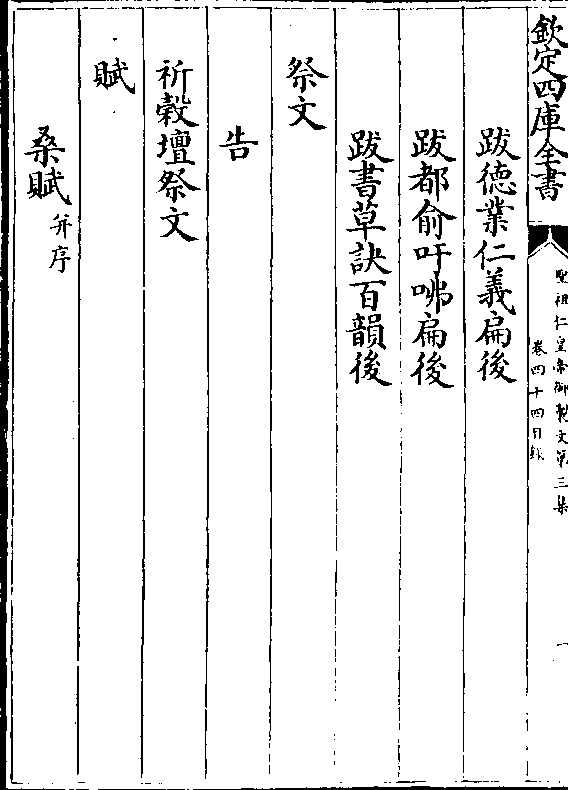 欽定四庫全書
聖祖仁皇帝御製文第三集
卷四十四目錄
一
跋德業仁義扁後
跋都俞吁咈扁後
跋書草訣百韻後
祭文
告
祈穀壇祭文
賦
桑賦并序